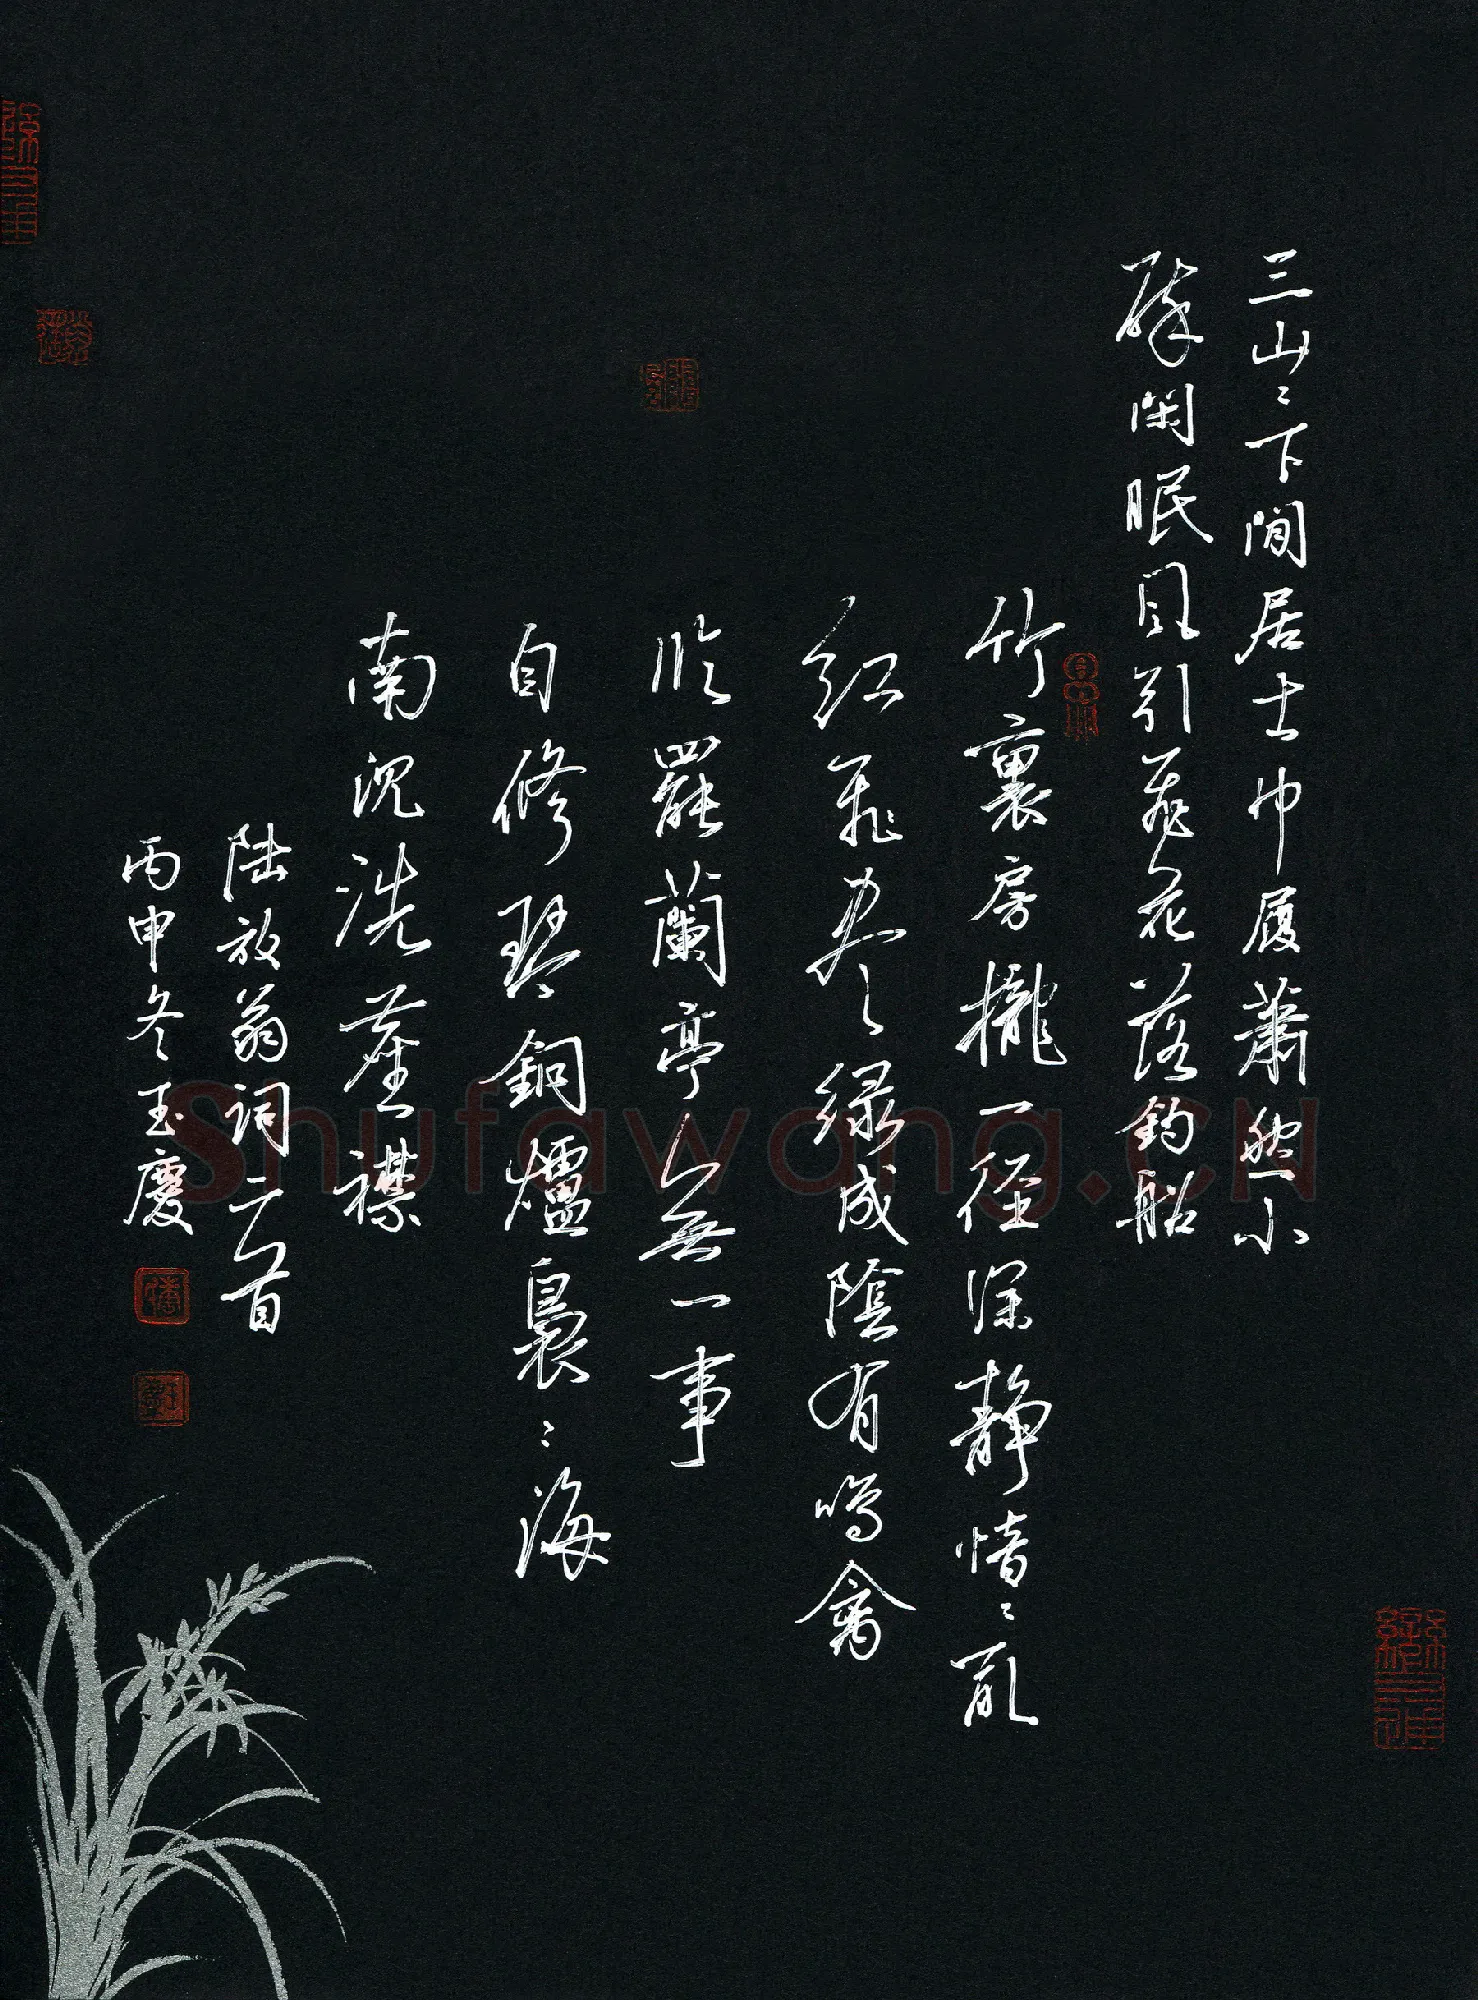 三山〻下閒居士巾履蕭然小
醉閑眠風引飛花落釣船
竹裏房櫳一徑深靜愔〻亂
紅飛盡綠成陰有鳴禽
臨罷蘭亭無一事
自修琴銅爐裊〻海
南沉洗塵襟
陸放翁詞二首
丙申冬玉慶
Shufawang.cn